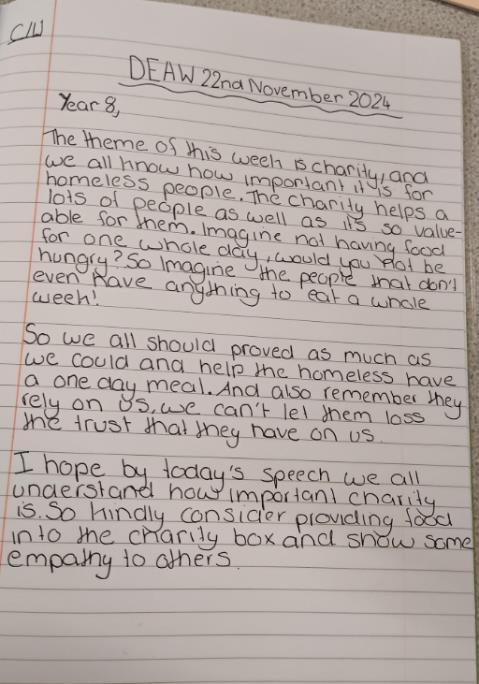 C/W
DEAW 22nd November 2024
Year 8,
The theme of this week is charity, and
we all know how important it is for
homeless people. The charity helps a
lots of people as well as it's so value-
able for them. Imagine not having food
for one whole day, would you not be
hungry? So Imagine the people that don't
even have anything to eat a whole
week!
So we all should proved as much as
we could and help the homeless have
a one day meal. And also remember they
rely on us, we can't let them loss
the trust that they have on us.
I hope by today's speech we all
understand how important charity
is. So kindly consider providing food
into the charity box and show some
empathy to others.